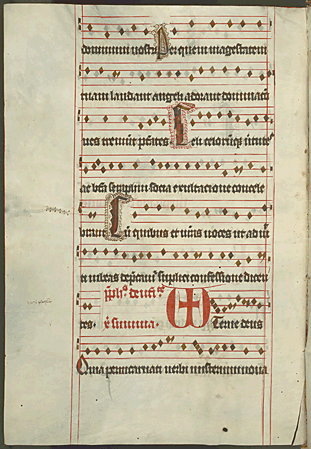 dominum nostrū Per quem magestatem
tuam laudant angeli adorant dominaci
ones tremūt ptātes Celi celorūq; virtu
ac bta seraphin socia exultacione concele
brant Cū quibus et nr̄as voces ut admi
ti iubeas dep̄camʳ suplici confessione dicen
tes. Eterne deus
Quia p incarnati verbi misterium noua